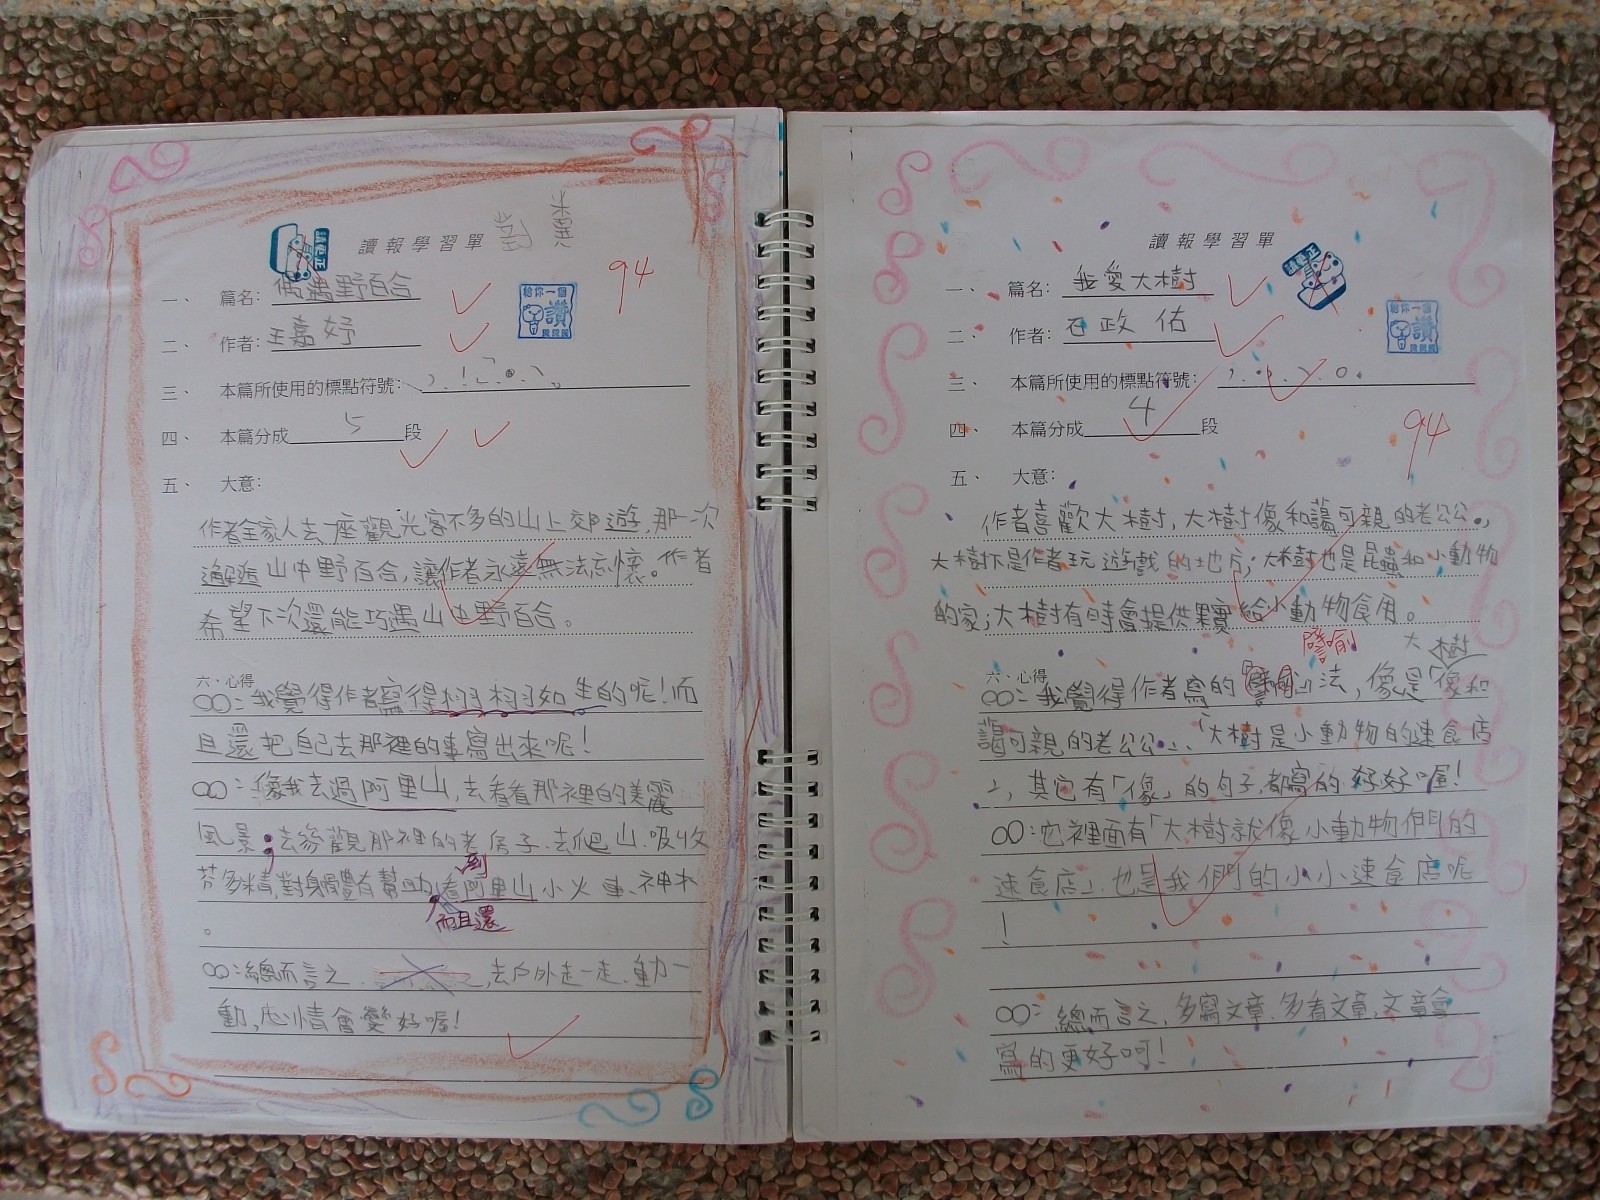 讀報學習單
94
一、 篇名：偶遇野百合
給你一個
讚
二、 作者：王嘉妤
三、 本篇所使用的標點符號：，、！「」。
四、 本篇分成5段
五、 大意：
作者全家人去一座觀光客不多的山上郊遊，那一次
邂逅山中野百合，讓作者永遠無法忘懷。作者
希望下次還能巧遇山中野百合。
六、心得
○○：我覺得作者寫得栩栩如生的呢！而
且還把自己去那裡的事寫出來呢！
○○：像我去過阿里山，去看看那裡的美麗
風景；去參觀那裡的老房子、去爬山、吸收
芬多精，對身體有幫助，看到阿里山小火車、神木
而且還
。
○○：總而言之，去戶外走一走、動一
動，心情會變好喔！
讀報學習單
一、 篇名：我愛大樹
給你一個
讚
二、 作者：石政佑
三、 本篇所使用的標點符號：
四、 本篇分成4段
94
五、 大意：
作者喜歡大樹，大樹像和藹可親的老公公，
大樹下是作者玩遊戲的地方；大樹也是昆蟲和小動物
的家；大樹有時會提供果實給小動物食用。
譬喻 大樹
六、心得
○○：我覺得作者寫的「譬喻」法，像是「像和
藹可親的老公公」、「大樹是小動物的速食店
」，其它有「像」的句子，都寫的好好喔！
○○：它裡面有「大樹就像小動物們的
速食店」，也是我們的小小速食店呢
！
○○：總而言之，多寫文章、多看文章，文章會
寫的更好呵！